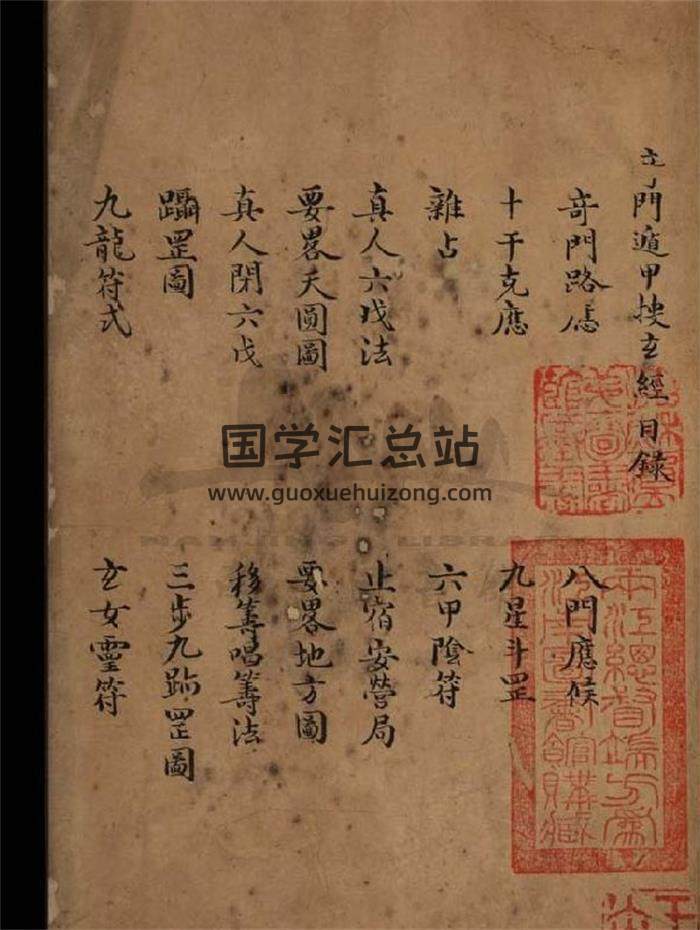 門遁甲玄經目錄
奇門路
八門應候
十干克應
九星斗罡
雜占
六甲陰符
真人六戊法
止宿安營局
要畧天圓圖
要畧地方圖
真人閉六戊
移籌唱籌法
躡罡圖
三步九跡罡圖
九龍符式
玄女靈符
兩江總督端方為
江南圖書館購藏
国学汇总站
www.guoxuehuizong.com